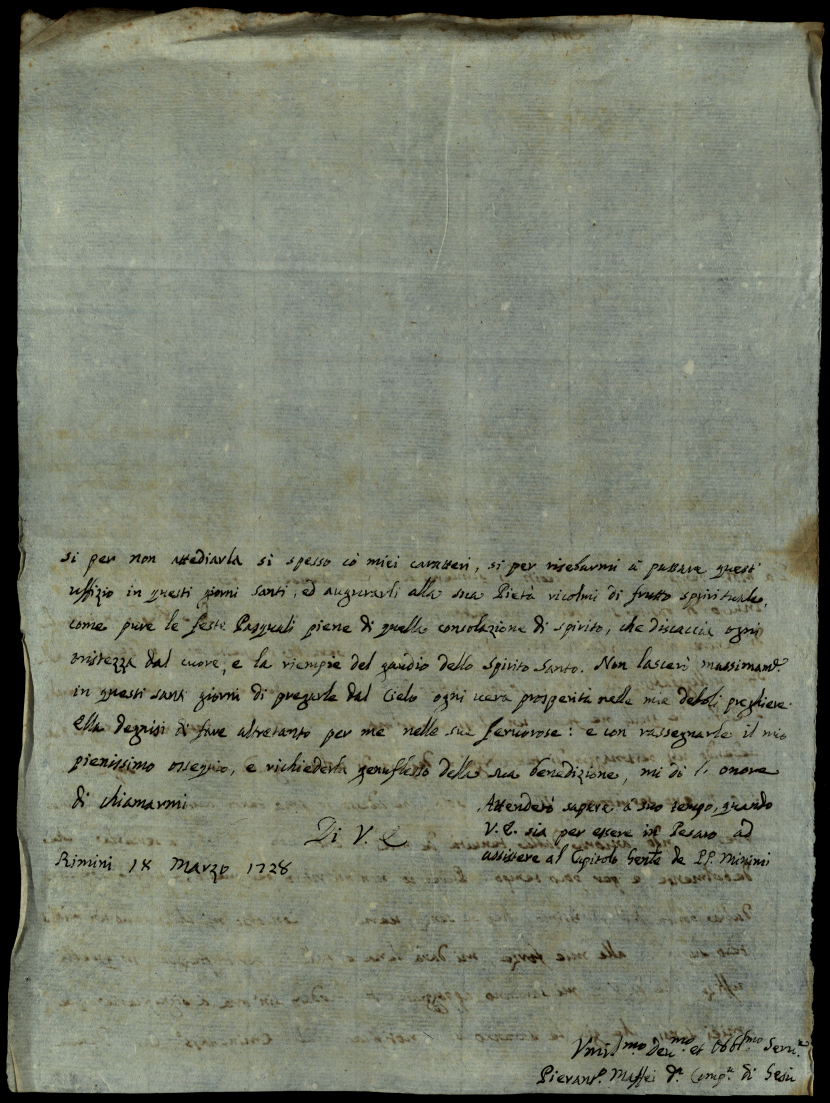 si per non attediarla si spesso có miei caratteri, si per riserbarmi à passare quest'
uffizio in questi giorni santi, ed augurarli alla sua Pietà ricolmi di frutto spirituale,
come pure le feste Pasquali piene di quella consolazione di spirito, che discaccia ogni
tristezza dal cuore, e la riempie del gaudio dello Spirito Santo. Non lascerò massimamte
in questi santi giorni di pregarle dal Cielo ogni vera prosperità nelle mie deboli preghiere.
Ella degnisi di fare altretanto per me nelle sue fervorose: e con rassegnarle il mio
pienissimo ossequio, e richiederla genuflesso della sua benedizione, mi dò l'onore
di chiamarmi
Di V. E.
Attenderò sapere à suo tempo, quando
V. E. sia per essere in Pesaro ad
assistere al Capitolo Genle de PP. Minimi
Rimini 18 Marzo 1728
Umilmo Devmo et Obblmo Serve
Pierantº Maffei da Compa di Gesù